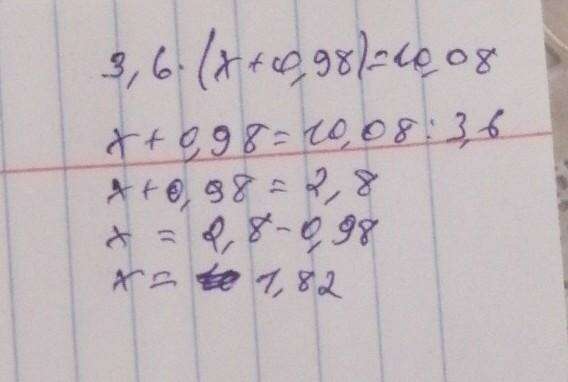 3,6·(x+0,98)=10,08
x+0,98=10,08:3,6
x+0,98=2,8
x=2,8-0,98
x= 1,82